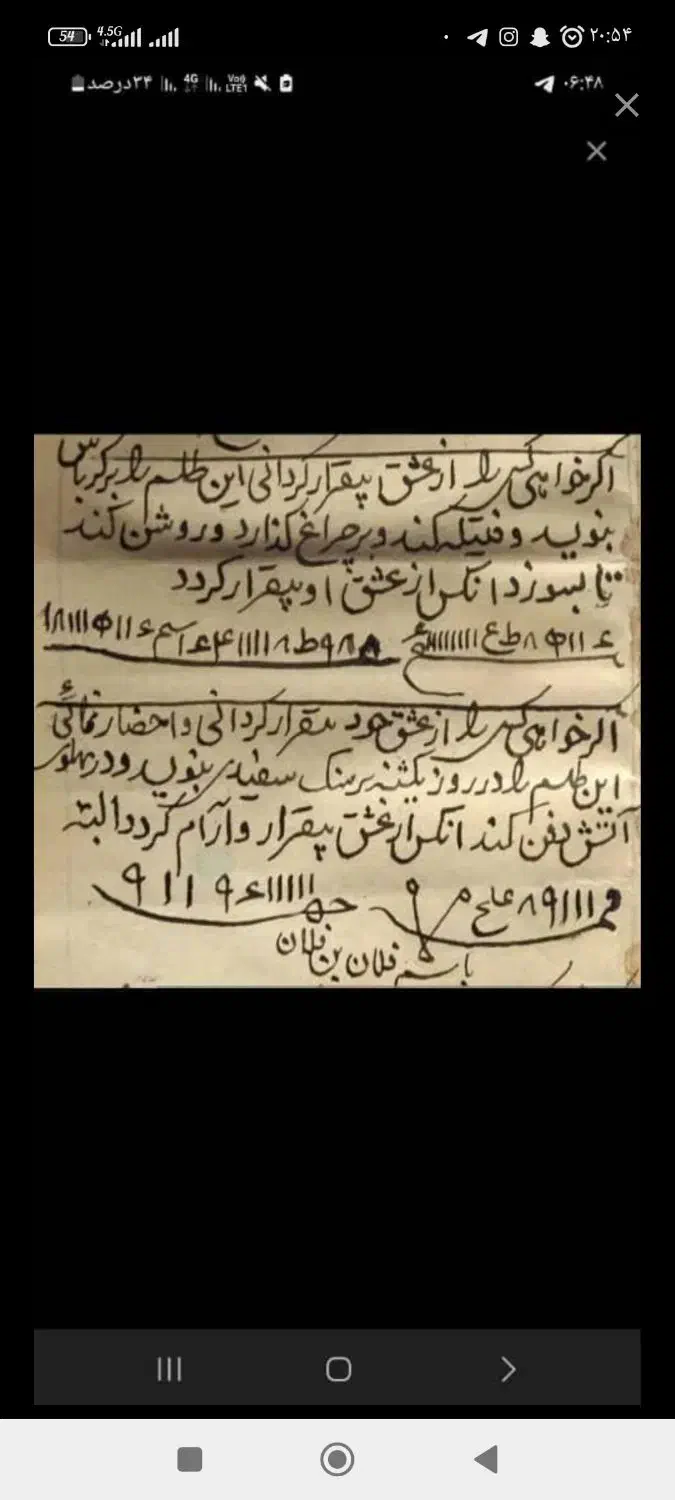 54 4.5G ۲۰:۵۴
۳۴درصد 4G Vo)) LTE1 ۰۶:۴۸
اگر خواهی کسی را از عشق بیقرار گردانی این طلسم را بر کرباس
بنویسد و فتیله کند و بر چراغ گذارد و روشن کند
تا بسوزد انکس از عشق او بیقرار گردد
اگر خواهی کسی را از عشق خود بیقرار گردانی و احضار نمائی
این طلسم را در روز یکشنبه بر سنک سفیدی بنویسد و در پهلوی
آتش دفن کند انکس از عشق بیقرار و آرام گردد البته
باسم فلان بن فلان